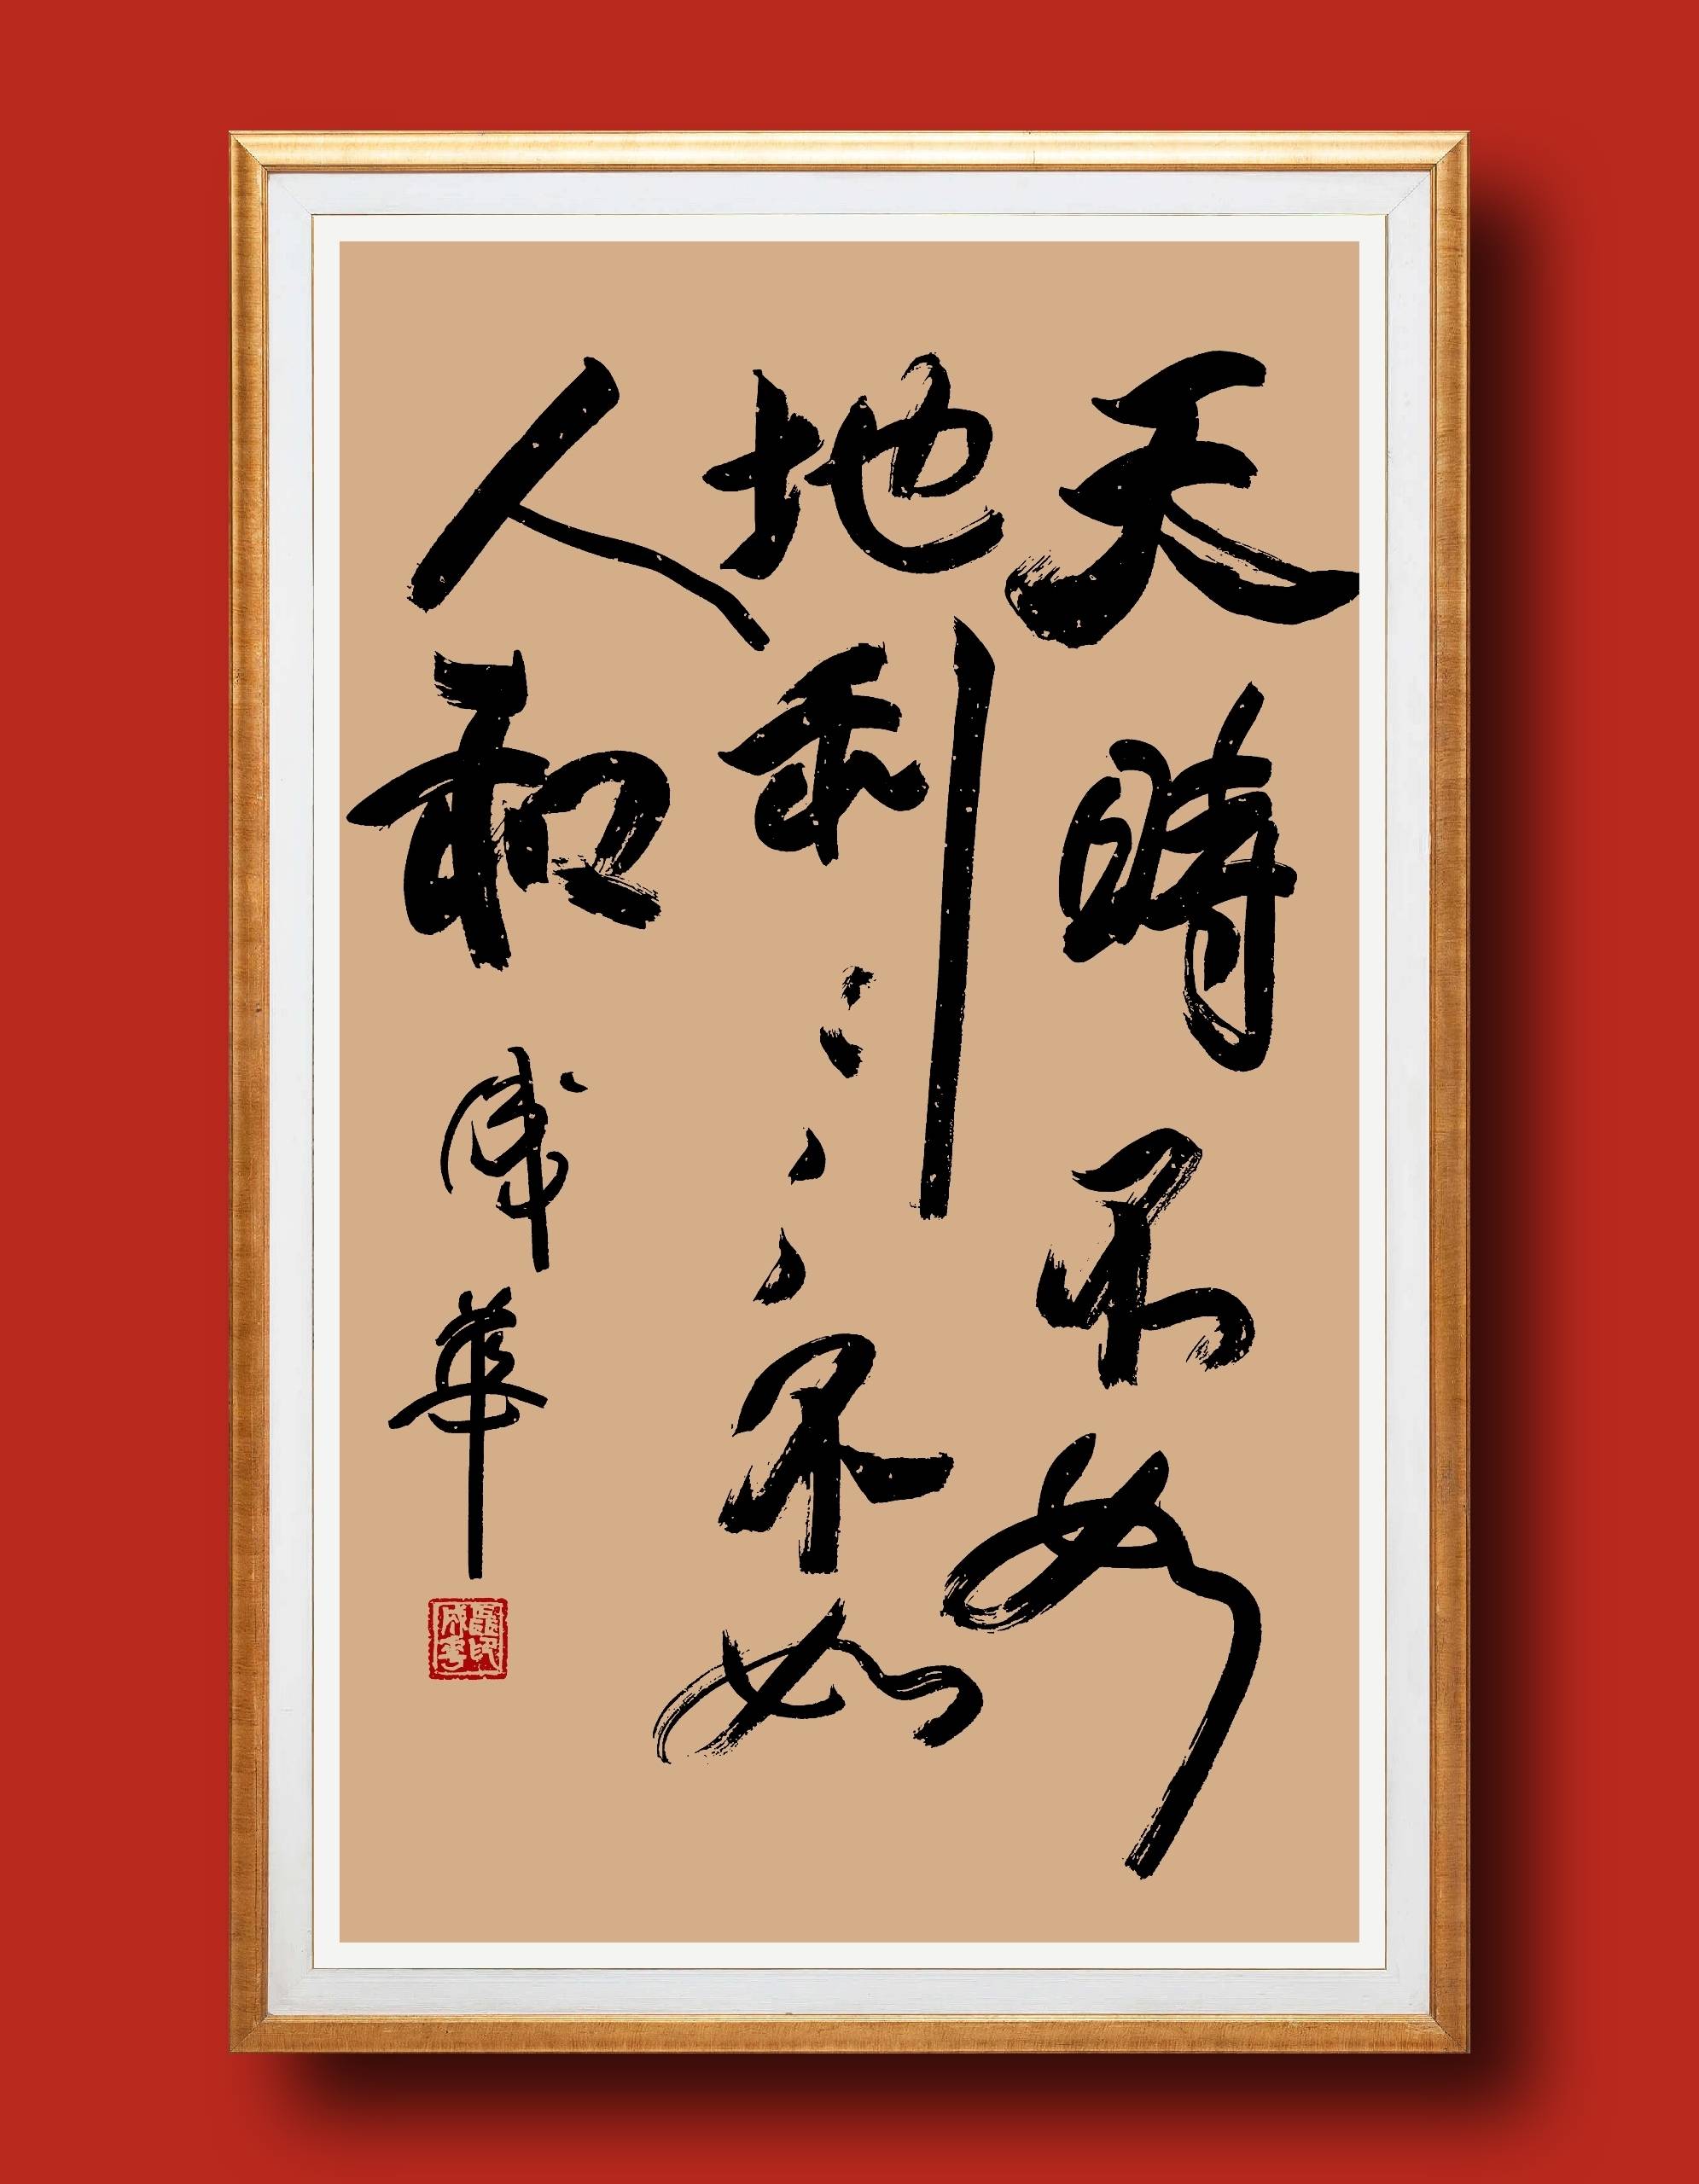 天時不如
地利々々不如
人和
成華